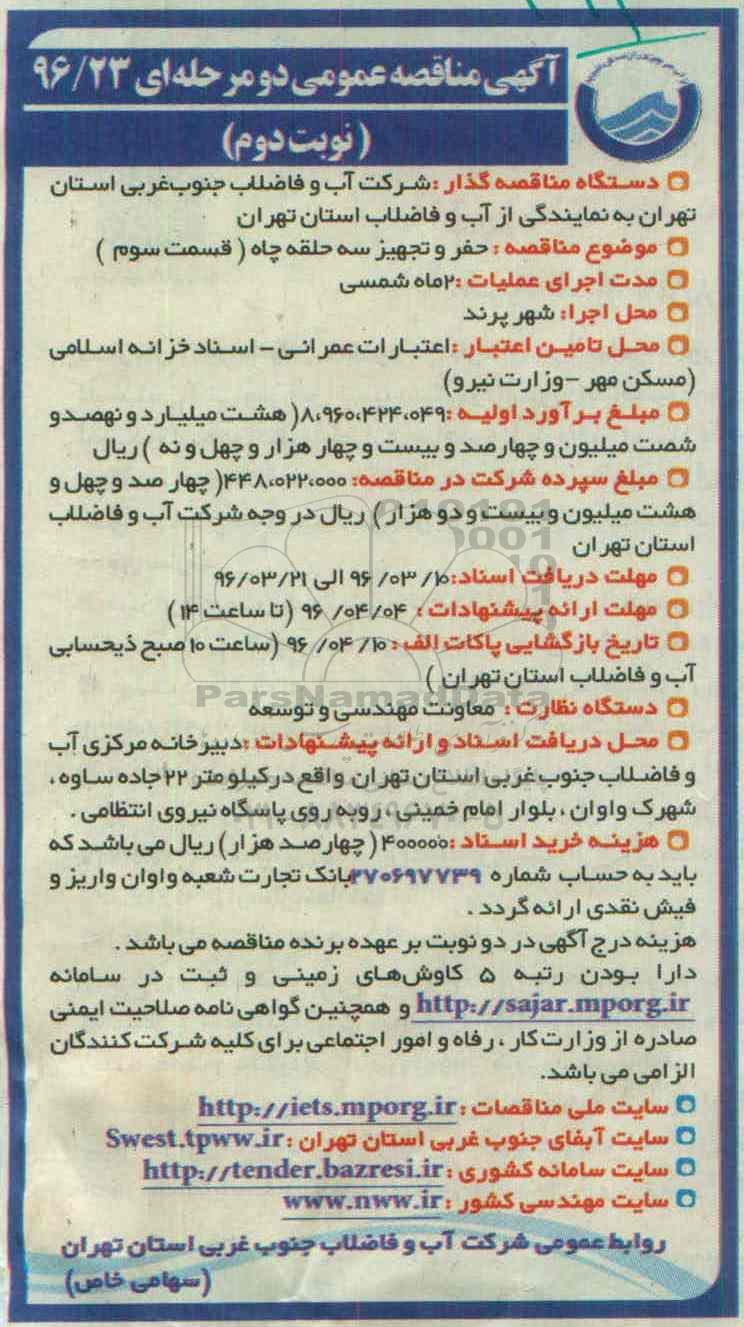 آگهی مناقصه عمومی دو مرحله‌ای ۹۶/۲۳
(نوبت دوم)
دستگاه مناقصه گذار: شرکت آب و فاضلاب جنوب‌غربی استان
تهران به نمایندگی از آب و فاضلاب استان تهران
موضوع مناقصه: حفر و تجهیز سه حلقه چاه (قسمت سوم)
مدت اجرای عملیات: ۲ماه شمسی
محل اجرا: شهر پرند
محل تامین اعتبار: اعتبارات عمرانی - اسناد خزانه اسلامی
(مسکن مهر - وزارت نیرو)
مبلغ برآورد اولیه: ۸،۹۶۰،۴۲۴،۰۴۹ (هشت میلیارد و نهصدو
شصت میلیون و چهارصد و بیست و چهار هزار و چهل و نه) ریال
مبلغ سپرده شرکت در مناقصه: ۴۴۸،۰۲۲،۰۰۰ (چهار صد و چهل و
هشت میلیون و بیست و دو هزار) ریال در وجه شرکت آب و فاضلاب
استان تهران
مهلت دریافت اسناد: ۹۶/۰۳/۱۰ الی ۹۶/۰۳/۲۱
مهلت ارائه پیشنهادات: ۹۶/۰۴/۰۴ (تا ساعت ۱۴)
تاریخ بازگشایی پاکات الف: ۹۶/۰۴/۱۰ (ساعت ۱۰ صبح ذیحسابی
آب و فاضلاب استان تهران)
ParsNamadData
دستگاه نظارت: معاونت مهندسی و توسعه
محل دریافت اسناد و ارائه پیشنهادات: دبیرخانه مرکزی آب
و فاضلاب جنوب غربی استان تهران واقع در کیلومتر ۲۲ جاده ساوه،
شهرک واوان، بلوار امام خمینی، روبه روی پاسگاه نیروی انتظامی.
هزینه خرید اسناد: ۴۰۰۰۰۰ (چهارصد هزار) ریال می باشد که
باید به حساب شماره ۲۷۰۶۹۷۷۳۹ بانک تجارت شعبه واوان واریز و
فیش نقدی ارائه گردد.
هزینه درج آگهی در دو نوبت بر عهده برنده مناقصه می باشد.
دارا بودن رتبه ۵ کاوش‌های زمینی و ثبت در سامانه
http://sajar.mporg.ir و همچنین گواهی نامه صلاحیت ایمنی
صادره از وزارت کار، رفاه و امور اجتماعی برای کلیه شرکت کنندگان
الزامی می باشد.
سایت ملی مناقصات: http://iets.mporg.ir
سایت آبفای جنوب غربی استان تهران: Swest.tpww.ir
سایت سامانه کشوری: http://tender.bazresi.ir
سایت مهندسی کشور: www.nww.ir
روابط عمومی شرکت آب و فاضلاب جنوب غربی استان تهران
(سهامی خاص)